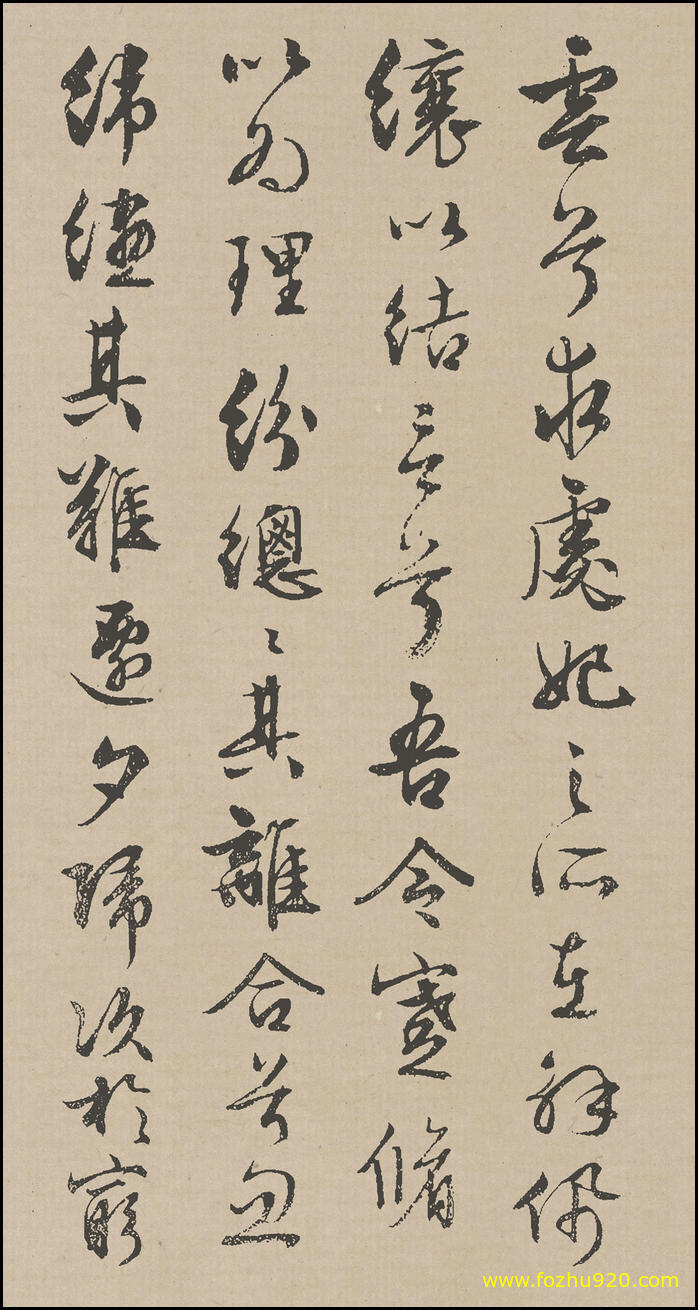 雲兮求虙妃之所在解佩
纕以結言兮吾令蹇脩
以為理紛總〻其離合兮忽
緯繣其難遷夕歸次於窮
www.fozhu920.com